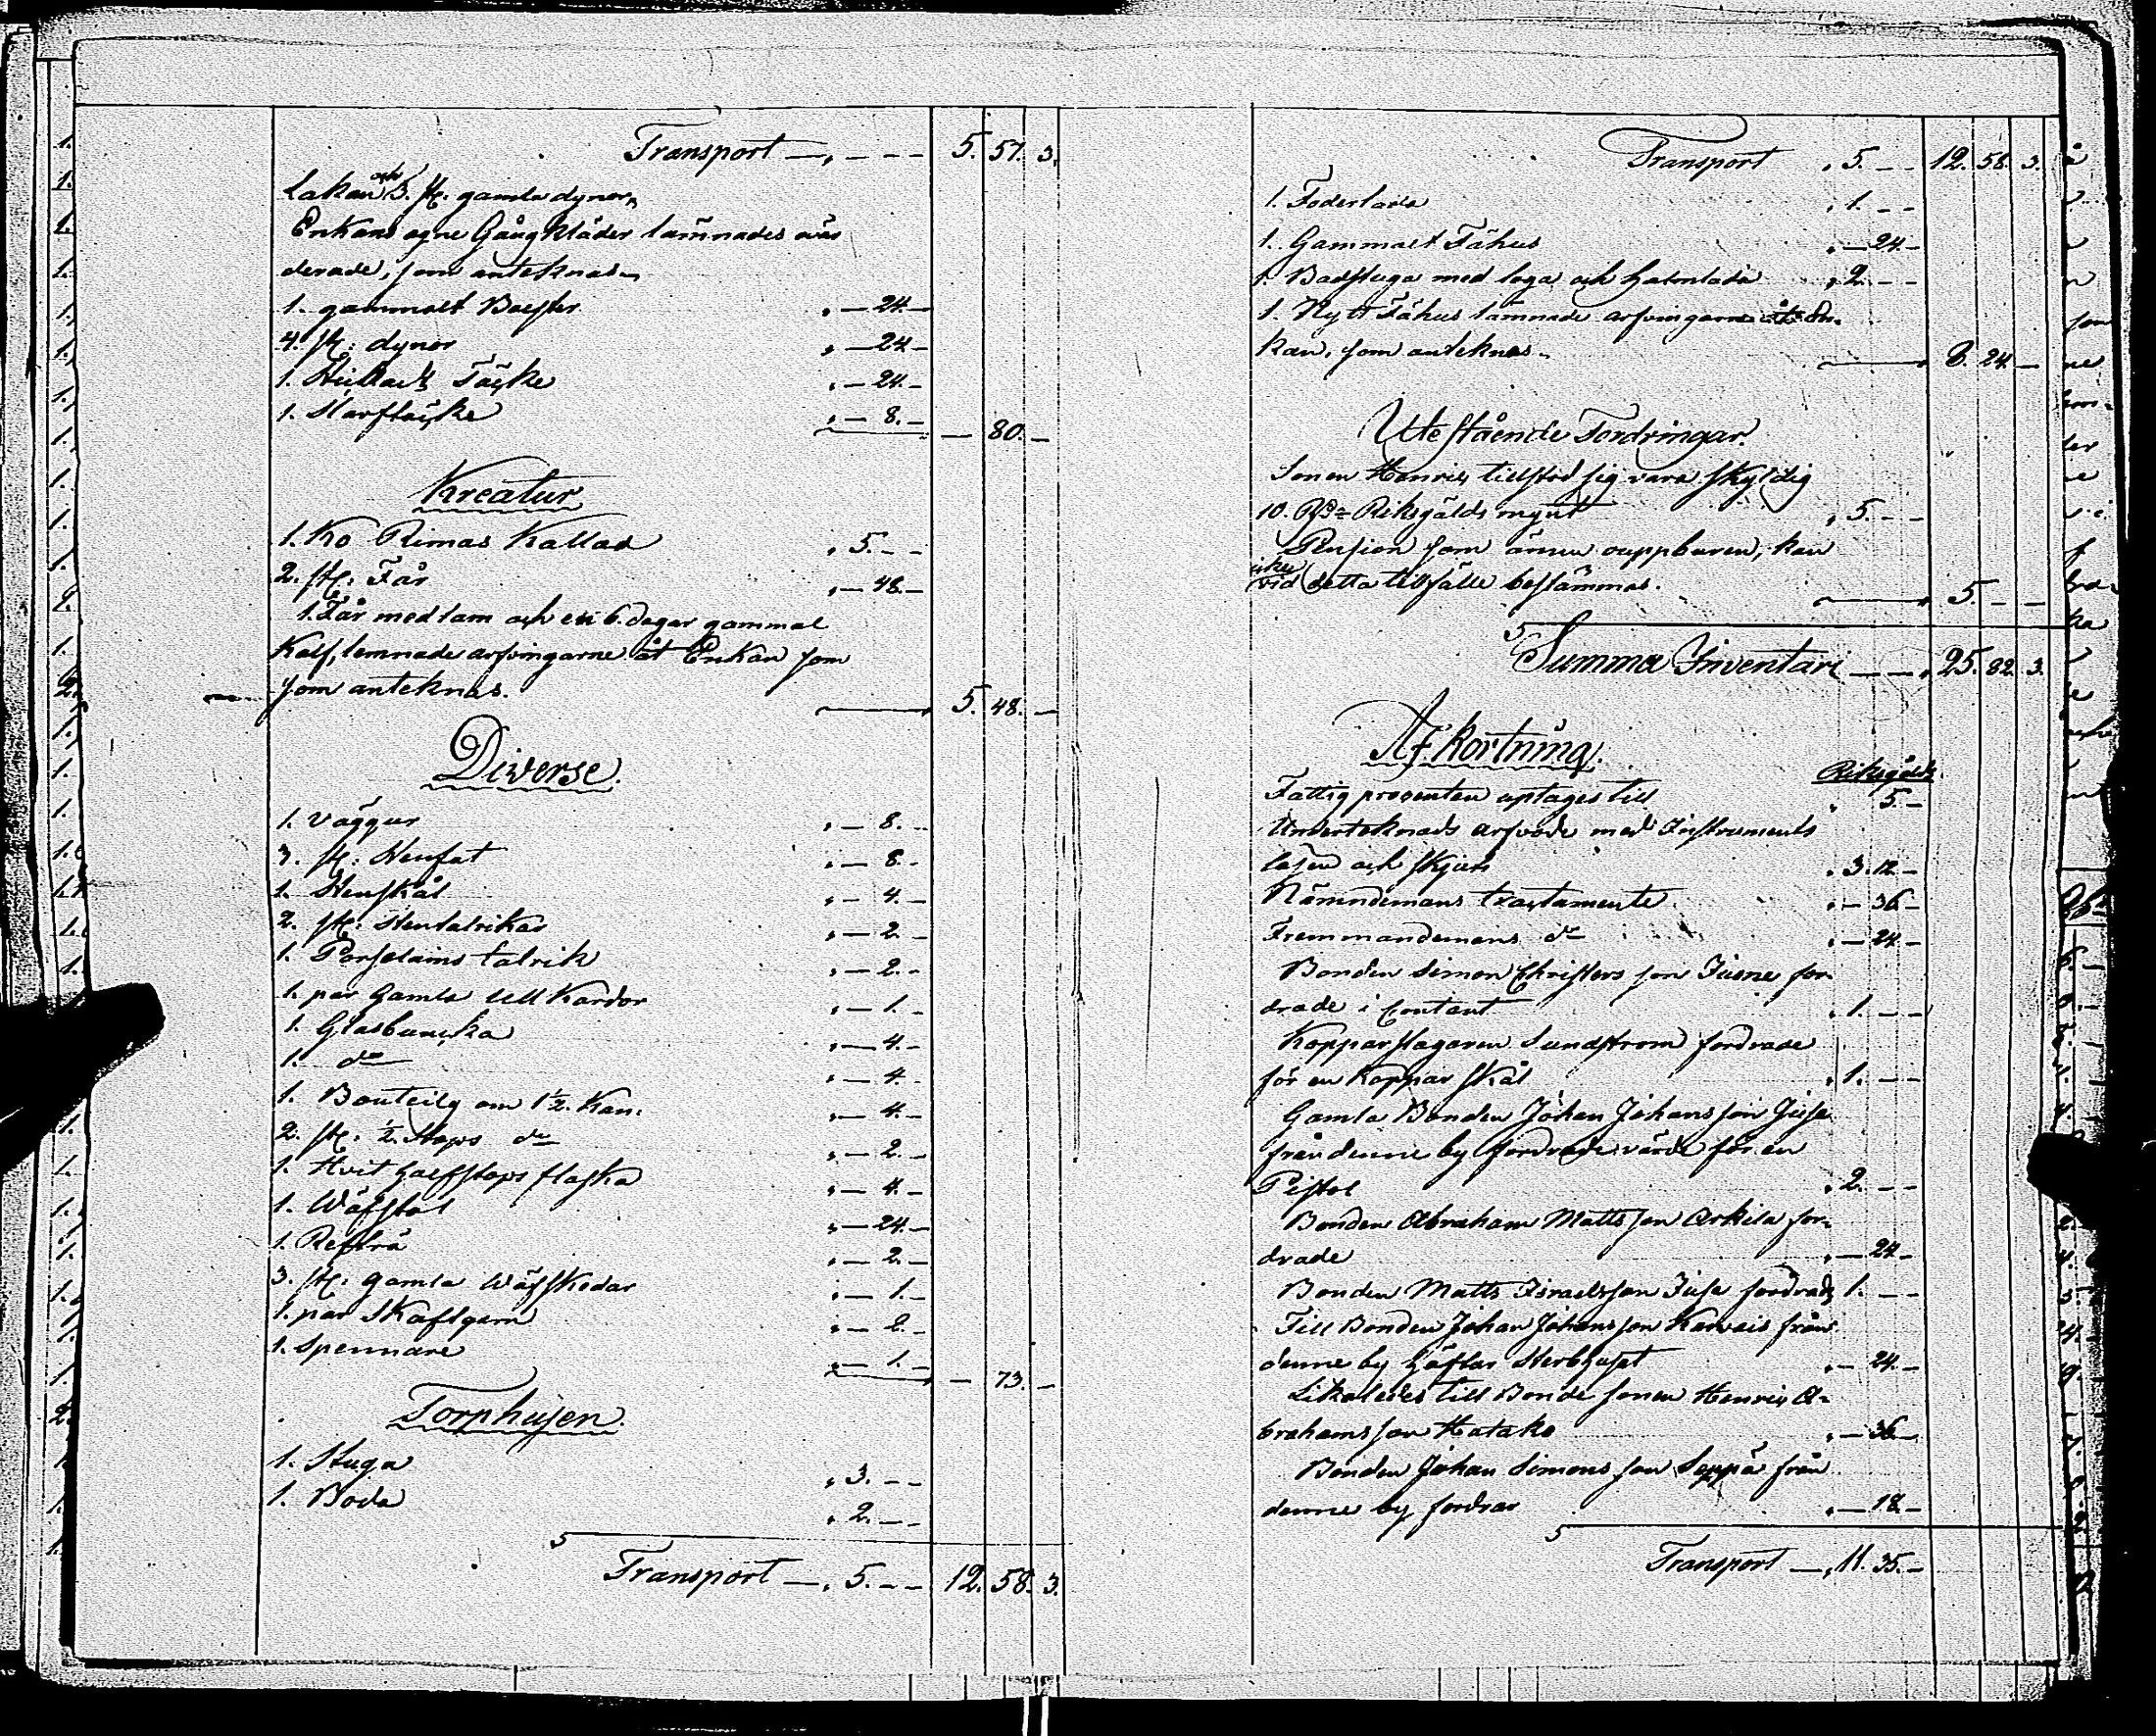 Transport — „ — — — 5. 57. 3.
Lakan och 3. st: gamla dynor,
Enkans egne Gångkläder lämnades ovär
derade, som anteknas.
1. gammalt Bolster „ — 24. —
4. st: dynor „ — 24 —
1. Täcke „ — 24. —
1. Skarftäcke „ — 8. —
— 80. —
Kreatur
1. Ko Rimas Kallad „ 5. — —
2. st: Får „ — 48. —
1. Får med lam och en 6. dagar gammal
Kalf, lemnade arfvingarne åt Enkan som
som anteknas.
5. 48. —
Diverse.
1. Väggur „ — 8. —
3. st: Stenfat „ — 8. —
1. Stenskål „ — 4. —
2. st: Stentalrikar „ — 2 —
1. Porselains talrik „ — 2. —
1. par Gamla Ull Kardor „ — 1. —
1. Glasbuncka „ — 4. —
1. do „ — 4. —
1. Bouteilg om 1½. Kan: „ — 4. —
2. st: ½. Stops do „ — 2. —
1. Hvit halfstops flaska „ — 4. —
1. Wäfstol „ — 24. —
1. Refträ „ — 2. —
3. st: gamla Wäfskedar „ — 1. —
1. par Skaftgarn „ — 2. —
1. Spennare „ — 1. —
— 73. —
Torphusen.
1. Stuga „ 3. — —
1. Boda „ 2. — —
Transport — „ 5. — — 12. 58. 3.
Transport „ 5. — — 12. 58. 3.
1. Foderlada „ 1. — —
1. Gammalt Fähus „ — 24. —
1. Badstuga med loga och halmlada „ 2. — —
1. Nytt Fähus lämnade arfvingarne åt En-
kan, som anteknas.
8. 24. —
Utestående Fordringar.
Sonen Henric tillstod sig vara skyldig
10. Rd= Riksgälds mynt „ 5. — —
Pension som ännu ouppburen, kan
icke
vid detta tillfälle bestämmas.
5. — —
Summa Inventari — — „ 25. 82. 3.
Afkortning.
Riksgälds
Fattig procenten uptages till „ 5 —
Underteknads arfvode med Instruments
lösen och skjuts „ 3. 12 —
Nämndemans tractamente „ — 36 —
Fremmandemans do „ — 24 —
Bonden Simon Christersson for-
drade i Contant „ 1. — —
Kopparslagaren Sundstrom fordrade
för en Koppar skål „ 1. — —
Gamla Bonden Johan Johansson Juse
från denne by fordrade värde för en
Pistol „ 2. — —
Bonden Abraham Mattsson Arkila for-
drade „ — 24 —
Bonden Matts Israelsson Juse fordrade 1. — —
Till Bonden Johan Johansson från
denne by häftar Sterbhuset „ — 24. —
Likaledes till Bonde sonen Henric A-
brahamsson Hatako „ — 36. —
Bonden Johan Simonsson Seppä från
denne by fordrar „ — 18. —
Transport — „ 11. 35. —